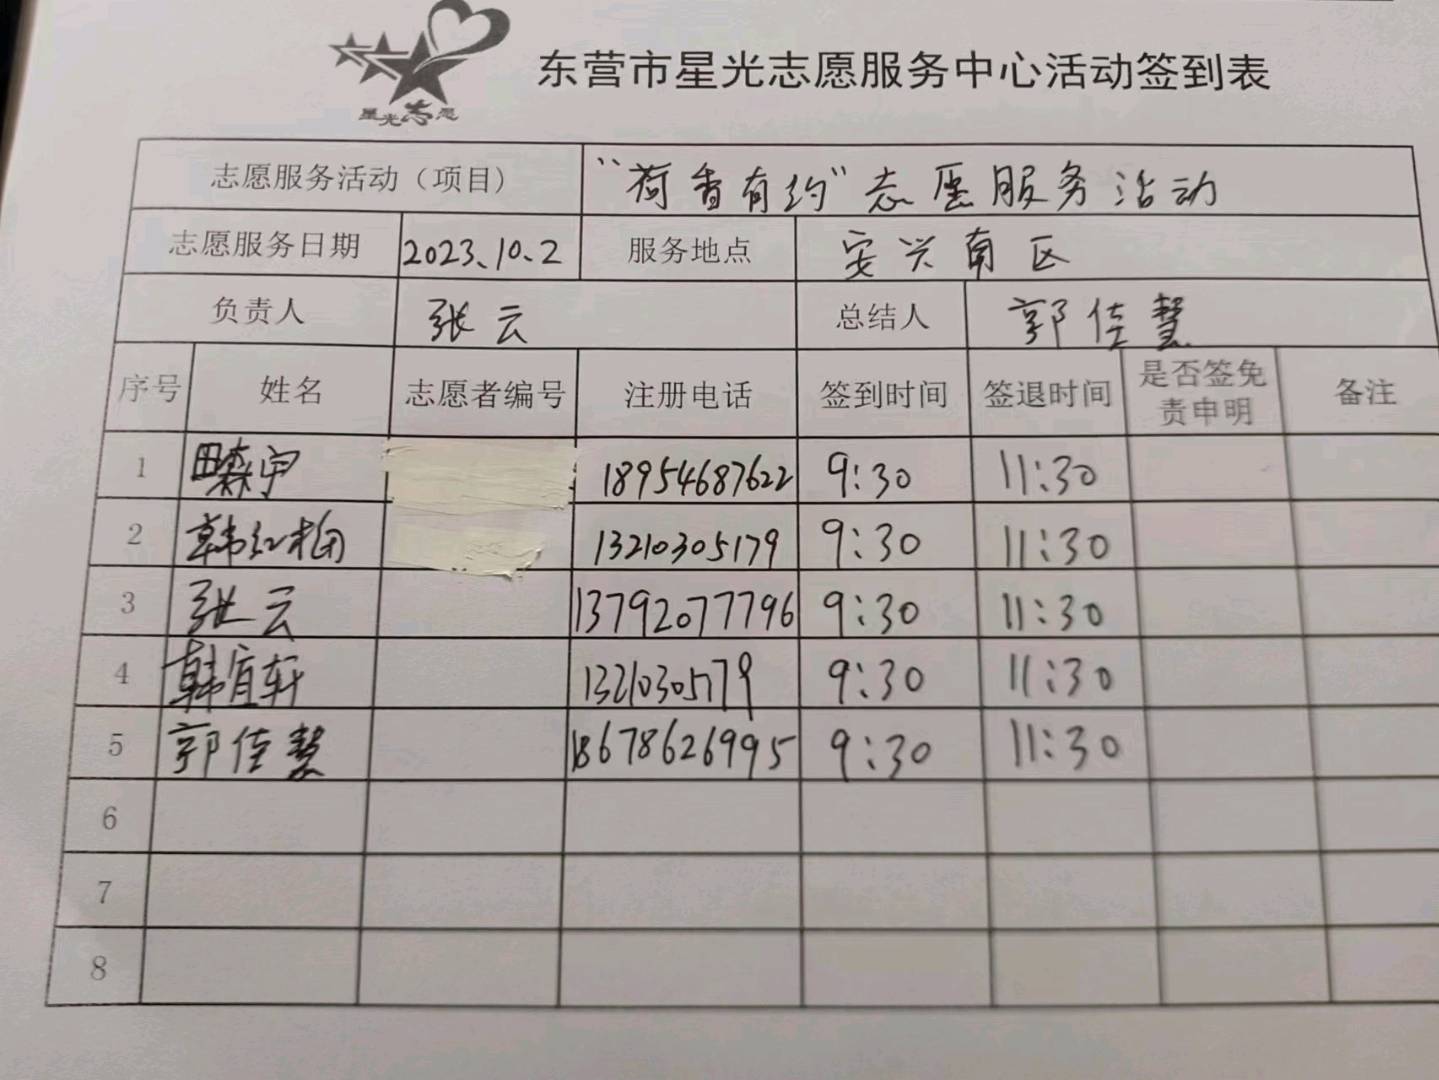 星光志愿
东营市星光志愿服务中心活动签到表
志愿服务活动（项目） “荷香有约”志愿服务活动
志愿服务日期 2023、10、2 服务地点 安兴南区
负责人 张云 总结人 郭佳慧
序号 姓名 志愿者编号 注册电话 签到时间 签退时间 是否签免责申明 备注
1 田森宁 18954687622 9:30 11:30
2 韩红梅 13210305179 9:30 11:30
3 张云 13792077796 9:30 11:30
4 韩宜轩 13210305179 9:30 11:30
5 郭佳慧 18678626995 9:30 11:30
6
7
8